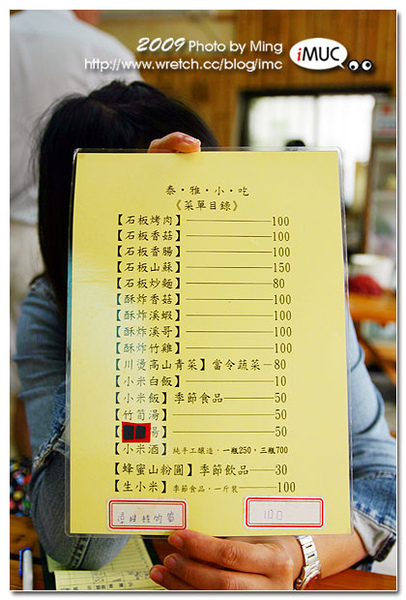 2009 Photo by Ming
http://www.wretch.cc/blog/imc
iMUC
泰·雅·小·吃
《菜單目錄》
【石板烤肉】——100
【石板香菇】——100
【石板香腸】——100
【石板山蘇】——150
【石板炒麵】——80
【酥炸香菇】——100
【酥炸溪蝦】——100
【酥炸溪哥】——100
【酥炸竹雞】——100
【川燙高山青菜】當令蔬菜—80
【小米白飯】——10
【小米飯】季節食品——50
【竹筍湯】——50
【湯】——50
【小米酒】純手工釀造,一瓶250,三瓶700
【蜂蜜山粉圓】季節飲品——30
【生小米】季節食品,一斤裝——100
100